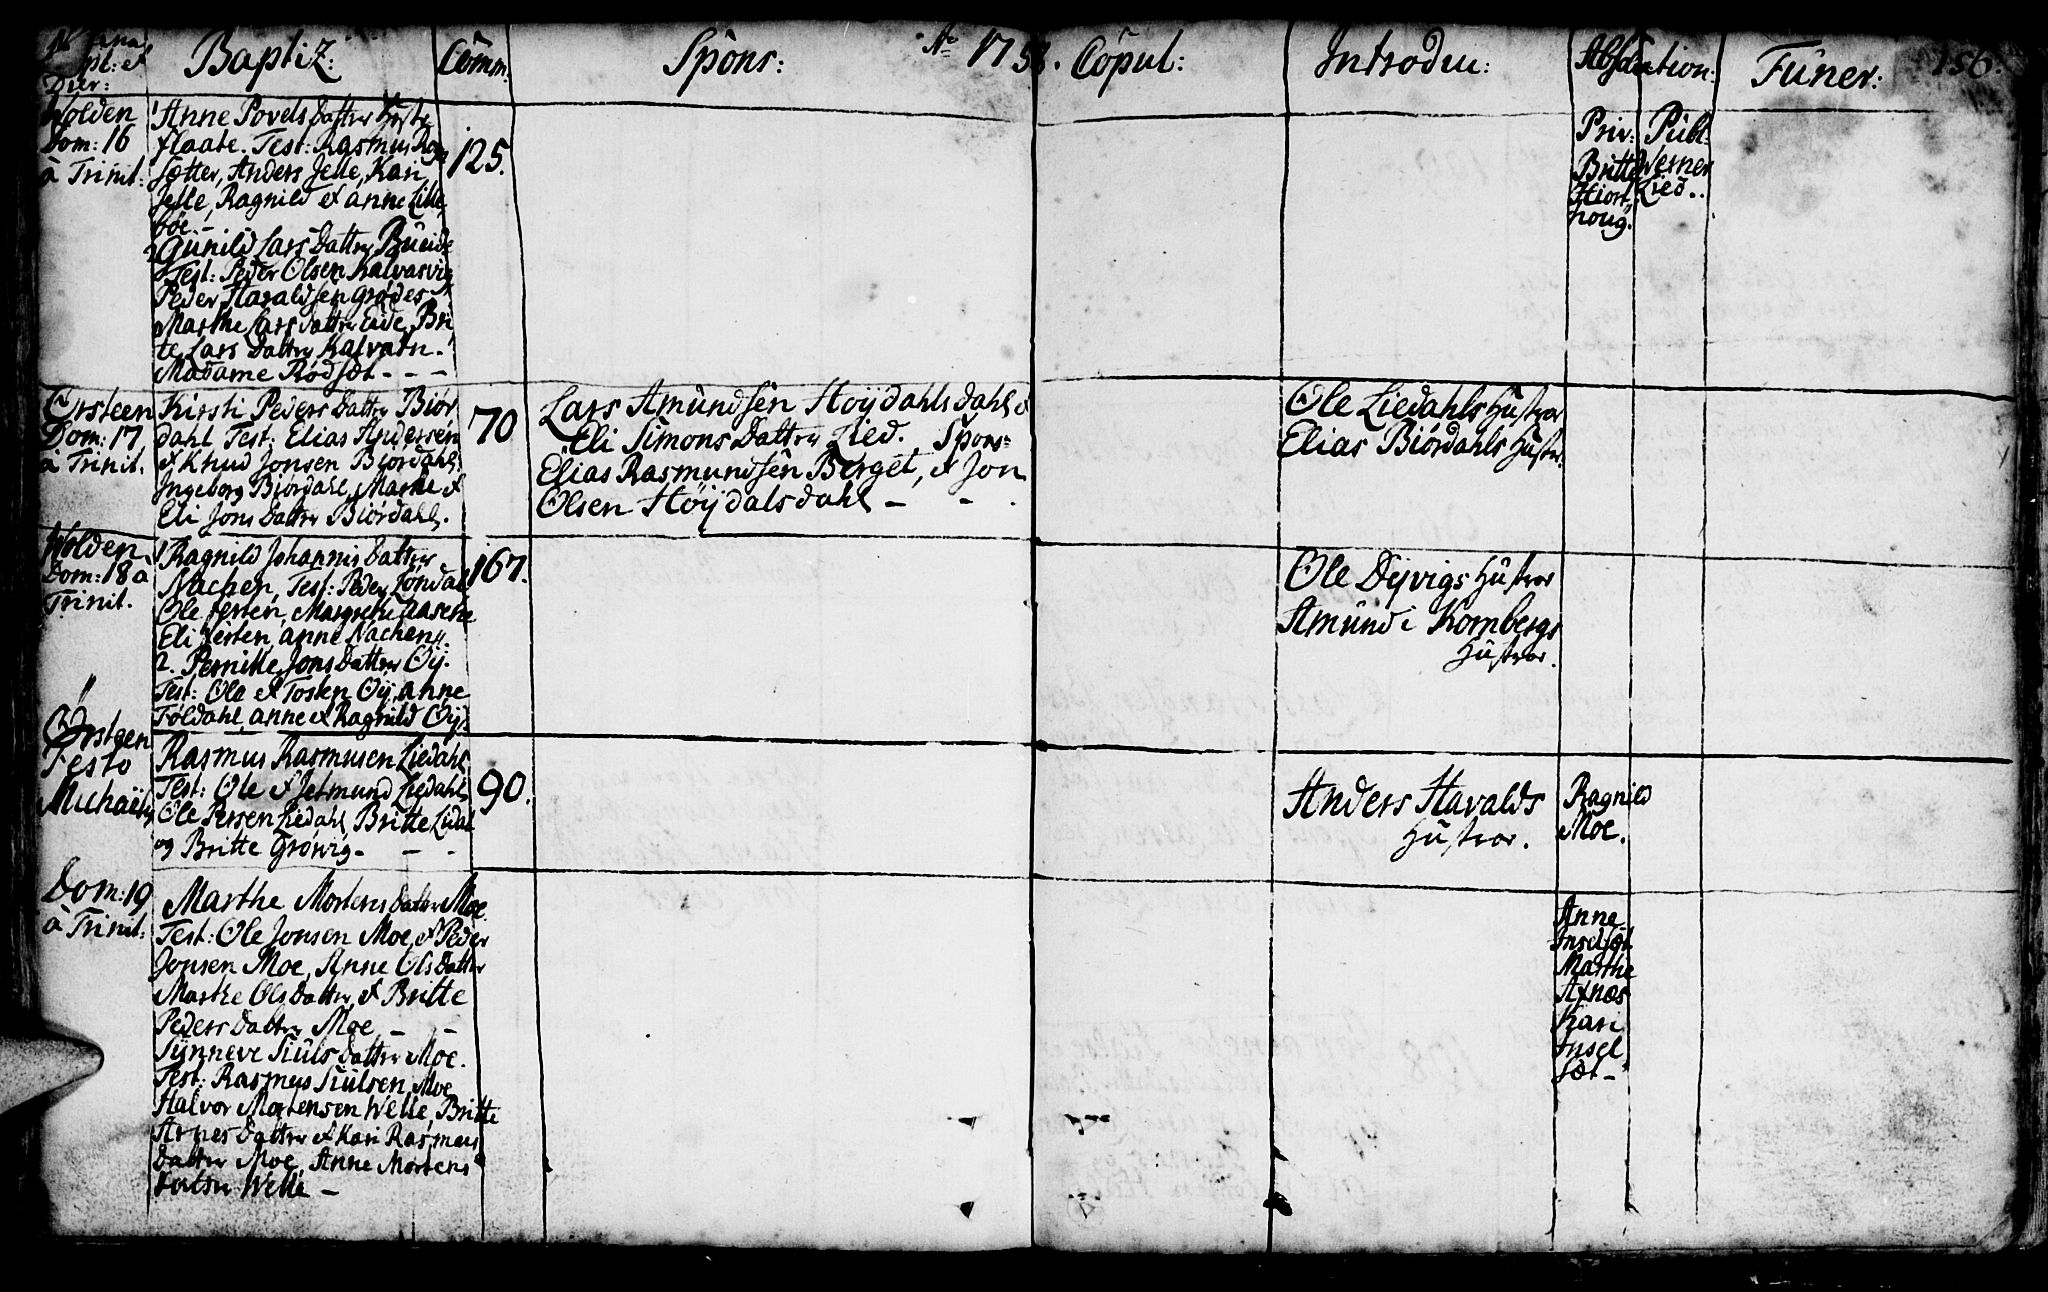 Baptiz: Comm: Spons: Ao 1758. Copul: Introdu: Absolution: Funer: 156.
Wolden
Dom: 16
à Trinit:
1 Anne Povels Datter
flaate. Test: Rasmus
sætter, Anders Jelle, Kari
Jelle, Ragnild & Anne Lille
bøe. -
2 Gunild Lars Datter Bueide
Test: Peder Olsen Kalvasvig
Peder Haraldsen Grødes
Marthe Lars Datter Eide, Bri
te Lars Datter Kalvatn.
Madame Rødsæt - - -
125.
Priv:
Britte
Hiort
houg.
Publ:
Werner
Lied.
Ørsteen
Dom: 17
à Trinit.
Kirsti Peders Datter Biør
dahl Test: Elias Andersen
& Knud Jonsen Biørdahl,
Ingeborg Biørdahl, Marthe &
Eli Jons Datter Biørdahl.
70
Lars Amundsen Høydahlsdahl &
Eli Simons Datter Lied. Spons:
Elias Rasmundsen Berget, & Jon
Olsen Høydalsdahl - - .
Ole Liedahls Hustror
Elias Biørdahls Hustr.
Wolden
Dom: 18 à
Trinit.
1 Ragnild Johannis Datter
Nachen, Test: Peder Løndal
Ole Jersten, Margrethe Aasene
Eli Jersten, Anne Nachen
2. Pernille Jons Datter Øy.
Test: Ole & Tosten Øy, Anne
Føldahl, Anne & Ragnild Øy.
167.
Ole Dyvigs Hustror
Amund i Kornbergs
Hustror.
Ørsteen
Festo
Michaëlis
Rasmus Rasmusen Liedahl
Test: Ole & Jetmund Liedahl,
Ole Persen Liedahl, Britte Lidal
og Britte Grøvig - - -
90.
Anders Havalds
Hustror.
Ragnild
Moe.
Dom: 19
à Trinit:
Marthe Mortens Datter Moe.
Test: Ole Jonsen Moe, & Peder
Jonsen Moe, Anne Ols Datter
Marthe Ols Datter, & Britte
Peders Datter Moe - -
Synneve Siuls Datter Moe.
Test: Rasmus Siulsen Moe
Halvor Mortensen Welle, Britte
Arnes Datter & Kari Rasmus
Datter Moe, Anne Mortens
Datter Welle -
Anne
Inselsæt
Marthe
Axnæs
Kari
Insel
sæt -